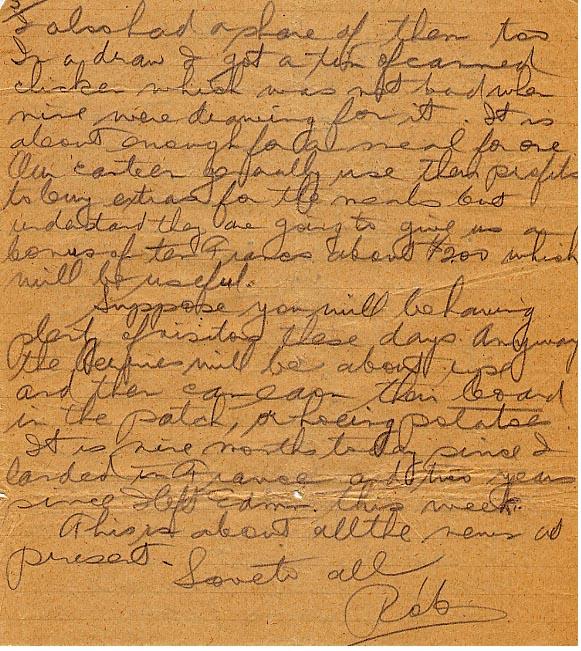 I also had a share of them too
In a draw I got a tin of canned
chicken which was not bad when
nine were drawing for it. It is
about enough for a meal for one
Our canteen generally use their profits
to buy extras for the meals but
understand they are going to give us a
bonus of ten Francs about $2.00 which
will be useful.
Suppose you will be having
plenty of visitors these days. Anyway
the berries will be about ripe
and then can earn their board
in the patch, or hoeing potatoe
It is nine months today since I
landed in France and two years
since I left Edmn. this week.
This is about all the news at
present.
Love to all
Rob.